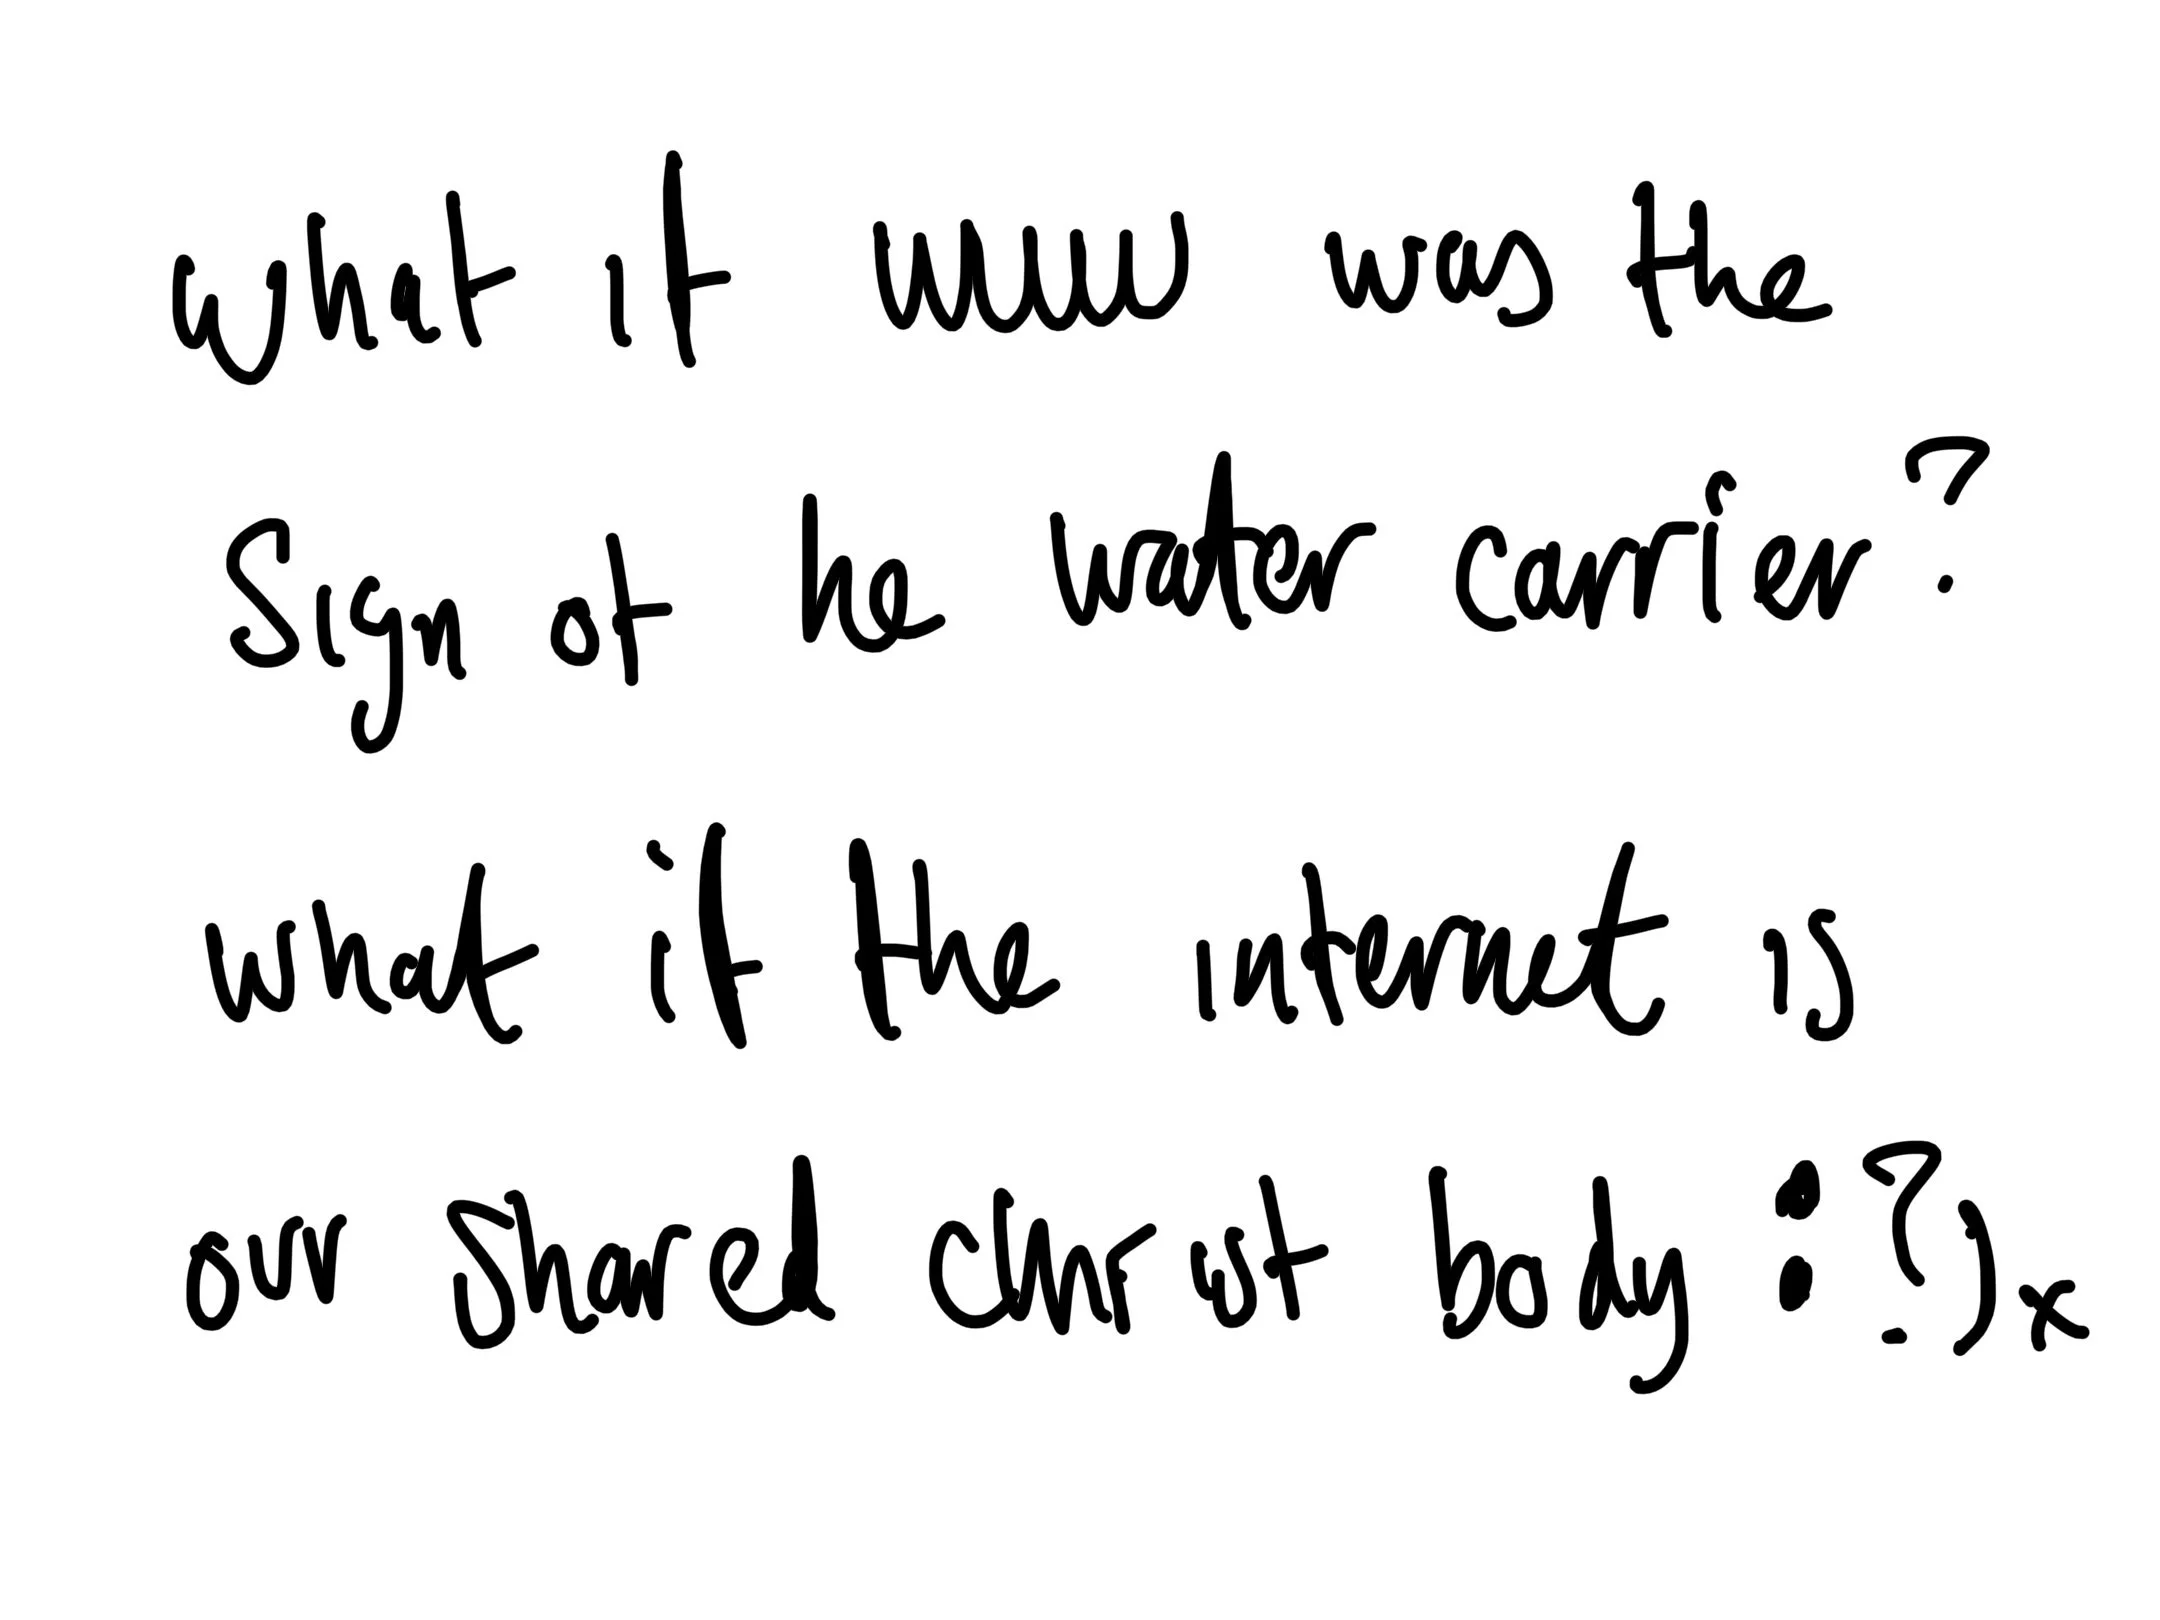 what if www was the
Sign of he water carrier?
what if the internet is
our shared christ body :?)x